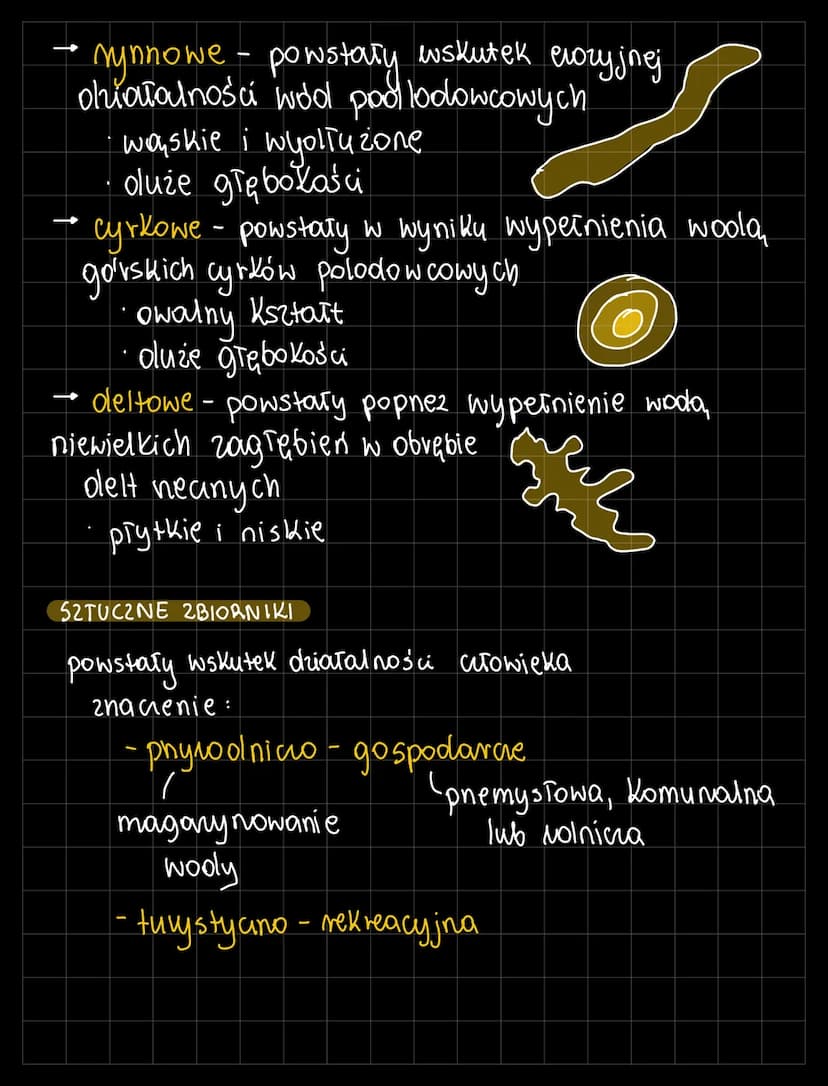 → rynnowe - powstały wskutek erozyjnej
działalności wód podlodowcowych
· wąskie i wydłużone
· duże głębokości
→ cyrkowe - powstały w wyniku wypełnienia wodą
górskich cyrków polodowcowych
· owalny kształt
· duże głębokości
→ deltowe - powstały poprzez wypełnienie wodą
niewielkich zagłębień w obrębie
delt rzecznych
· płytkie i niskie
SZTUCZNE ZBIORNIKI
powstały wskutek działalności człowieka
znaczenie:
- przyrodniczo - gospodarcze
przemysłowa, komunalna
magazynowanie
lub rolnicza
wody
- turystyczno - rekreacyjna